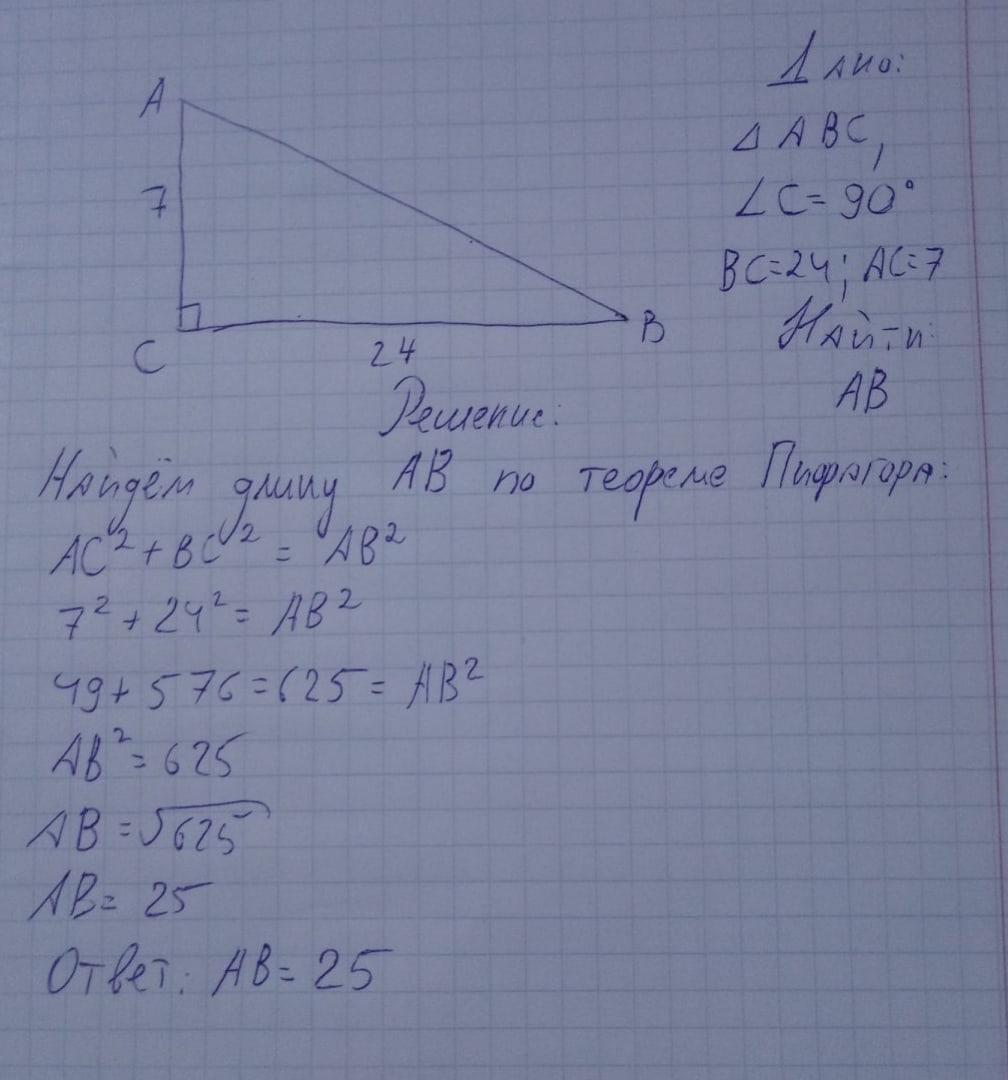 A
7
C
24
B
Дано:
△ ABC,
∠C=90°
BC=24; AC=7
Найти:
AB
Решение:
Найдём длину AB по теореме Пифагора:
AC² + BC² = AB²
7² + 24² = AB²
49 + 576 = 625 = AB²
AB² = 625
AB = √625
AB = 25
Ответ: AB = 25